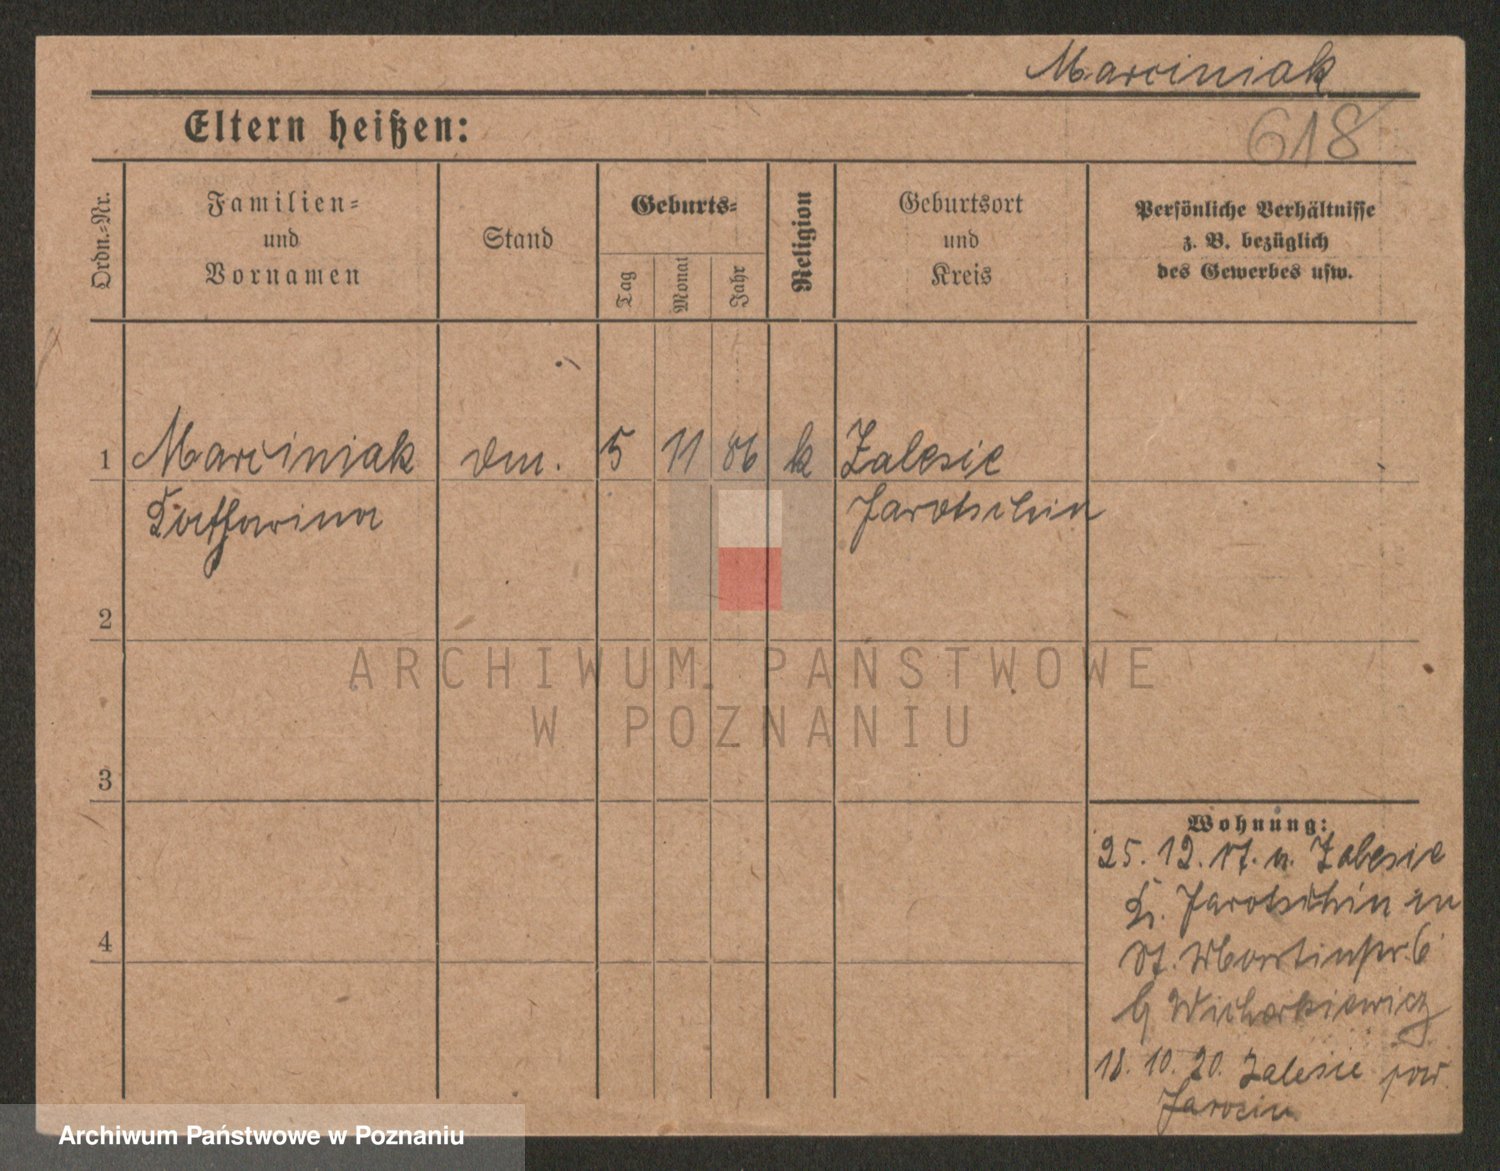 Marciniak
618
Eltern heißen:
Ordn.-Nr.
Familien-
und
Vornamen
Stand
Geburts-
Tag
Monat
Jahr
Religion
Geburtsort
und
Kreis
Persönliche Verhältnisse
z. B. bezüglich
des Gewerbes usw.
1 Marciniak 5 11 86 k Zalesie
Katharina Jarotschin
2
ARCHIWUM PAŃSTWOWE
W POZNANIU
3
Wohnung:
25. 12. 17. n. Zalesie
K. Jarotschin in
St. Martinstr. 6
18. 10. 20. Zalesie pow.
Jarocin
4
Archiwum Państwowe w Poznaniu